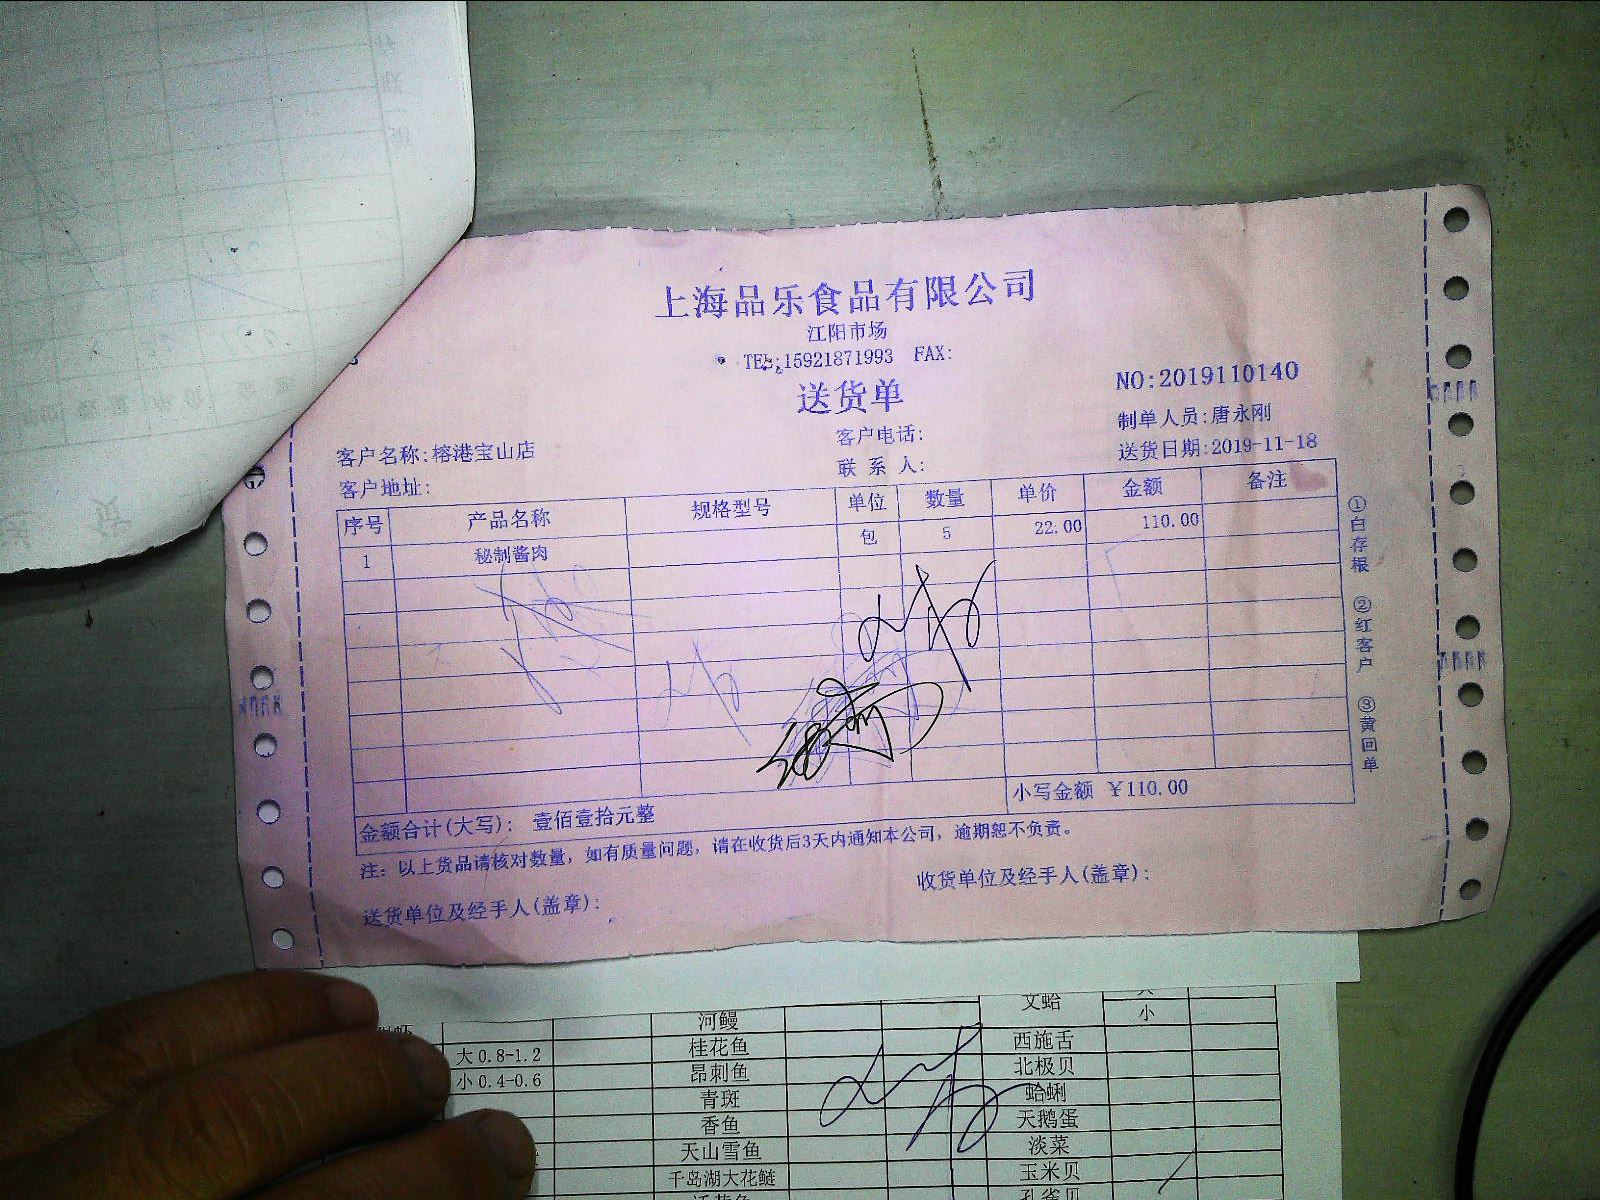 上海品乐食品有限公司
江阳市场
TEL:15921871993 FAX:
送货单
NO:2019110140
制单人员:唐永刚
客户名称:榕港宝山店
客户电话:
送货日期:2019-11-18
客户地址:
联 系 人:
序号 产品名称 规格型号 单位 数量 单价 金额 备注
1 秘制酱肉 包 5 22.00 110.00
金额合计(大写): 壹佰壹拾元整 小写金额 ￥110.00
注: 以上货品请核对数量, 如有质量问题, 请在收货后3天内通知本公司, 逾期恕不负责。
送货单位及经手人(盖章):
收货单位及经手人(盖章):
①白存根 ②红客户 ③黄回单
河鳗 文蛤 小
大0.8-1.2 桂花鱼 西施舌
小0.4-0.6 昂刺鱼 北极贝
青斑 蛤蜊
香鱼 天鹅蛋
天山雪鱼 淡菜
千岛湖大花鲢 玉米贝